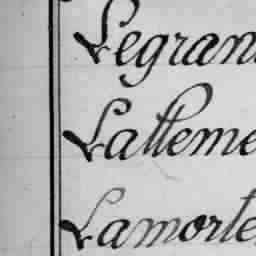 Legran
Lalleme
Lamorte